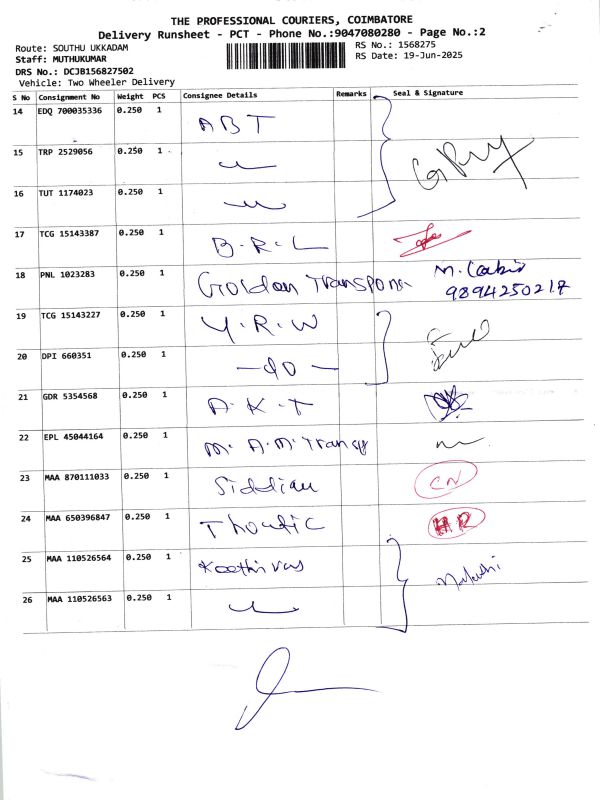 THE PROFESSIONAL COURIERS, COIMBATORE
Delivery Runsheet - PCT - Phone No.:9047080280 - Page No.:2
Route: SOUTHU UKKADAM
RS No.: 1568275
Staff: MUTHUKUMAR
RS Date: 19-Jun-2025
DRS No.: DCJB156827502
Vehicle: Two Wheeler Delivery
S No Consignment No Weight PCS Consignee Details Remarks Seal & Signature
14 EDQ 700035336 0.250 1 ABT
15 TRP 2529056 0.250 1
16 TUT 1174023 0.250 1
17 TCG 15143387 0.250 1 B.R.L
18 PNL 1023283 0.250 1 Golden Transport M. Kabir
9894250217
19 TCG 15143227 0.250 1 Y.R.W
20 DPI 660351 0.250 1 -do-
21 GDR 5354568 0.250 1 A.K.T
22 EPL 45044164 0.250 1 M.A.M.Transp
23 MAA 870111033 0.250 1 CN
24 MAA 650396847 0.250 1 Thoufic HR
25 MAA 110526564 0.250 1 Keethivas
26 MAA 110526563 0.250 1